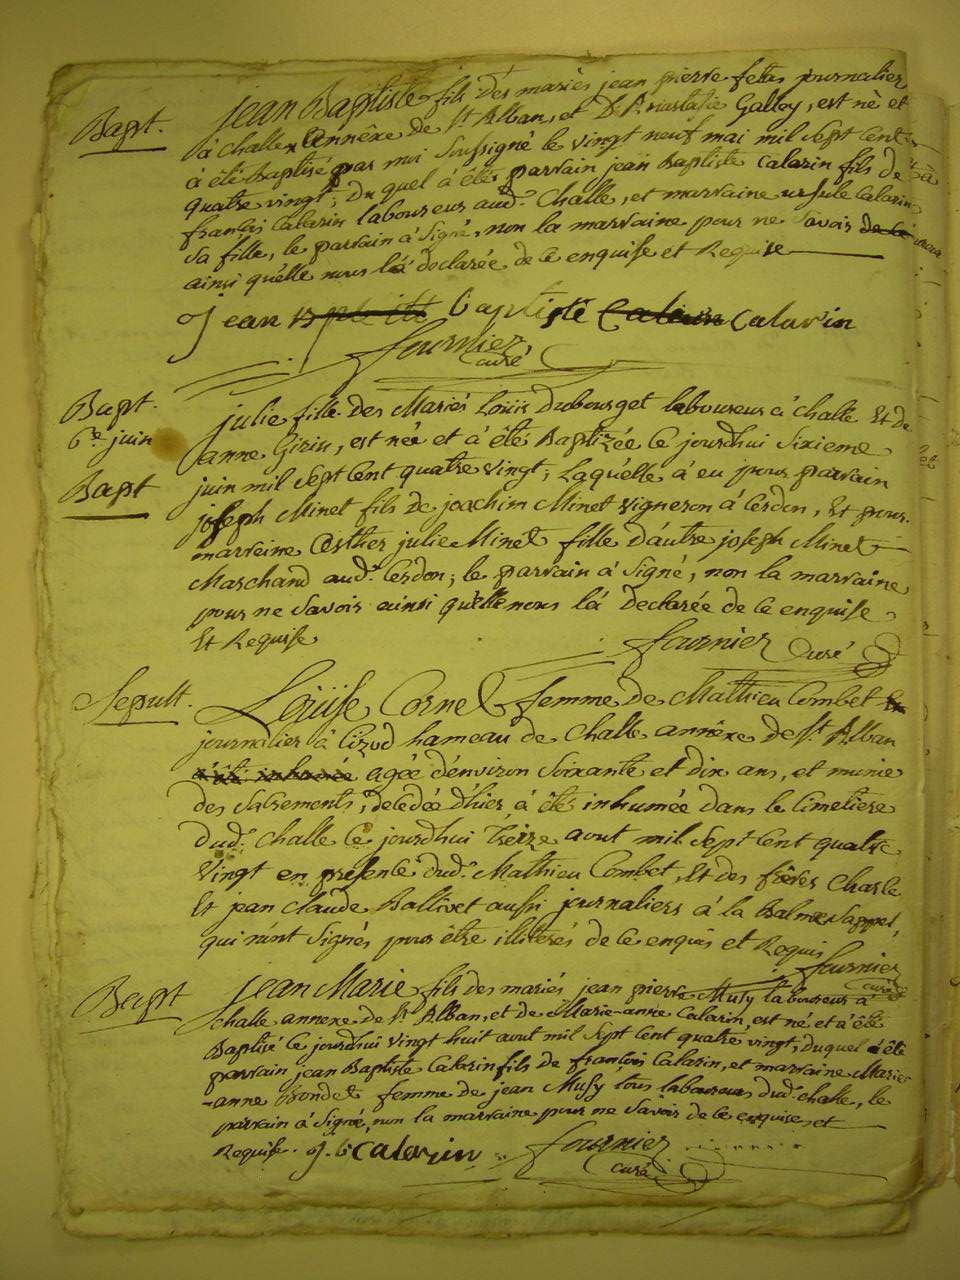 Bapt. jean Baptiste fils des mariés jean pierre fetas journalier
à challe annêxe de St. Alban, et D'Anastasie Galley, est né et
à été Baptisé par moi Soussigné le vingt neuf mai mil sept cent
quatre vingt; Duquel à été parrain jean Baptiste Calarin fils de
françois Calarin laboureur aud. Challe, et marraine ursule Calarin
Sa fille, le parrain à Signé, non la marraine pour ne Savoir
ainsi qu'elle nous l'a declarée de ce enquise et Requise
jean Baptiste Calarin
fournier
curé
Bapt.
6e. juin
Bapt
julie fille des Mariés Loüis Dubourget laboureur à challe Et de
anne Girin, est née et à été Baptizée ce jourdhui Sixieme
juin mil Sept Cent quatre vingt; Laqu'elle à eu pour parrain
joseph Minet fils de joachim Minet vigneron à Cerdon, Et pour
marreine Esther julie Minet fille d'autre joseph Minet
Marchand aud. Cerdon; le parrain à Signé, non la marraine
pour ne Savoir ainsi qu'elle nous l'a declarée de ce enquise
Et Requise
fournier Curé
Sepult. Loüise Cornet femme de Mathieu Combet
journalier à Cizod hameau de Challe annêxe de St. Alban
agée d'environ Soixante et dix ans, et munie
des Sacrements, decedée d'hier à été inhumée dans le Cimetiere
dud. Challe Ce jourdhui treize aout mil Sept Cent quatre
Vingt en presence dud. Mathieu Combet, Et des frères Charle
Et jean Claude Ballivet aussi journaliers à la Balme Sappel,
qui n'ont Signés pour être illiterés de ce enquis et Requis
fournier
curé
Bapt jean Marie fils des mariés jean pierre Musy laboureur à
Challe annexe de St. Alban, et de Marie-anne Calarin, est né et à été
Baptisé Ce jourdhui vingt huit aout mil Sept Cent quatre vingt; duquel à été
parrain jean Baptiste Calarin fils de françois Calarin, et marraine Marie
-anne Bondet femme de jean Musy tous laboureurs dud. challe, le
parrain à Signé, non la marraine pour ne Savoir de ce enquise et
Requise. j. b Calarin fournier
curé